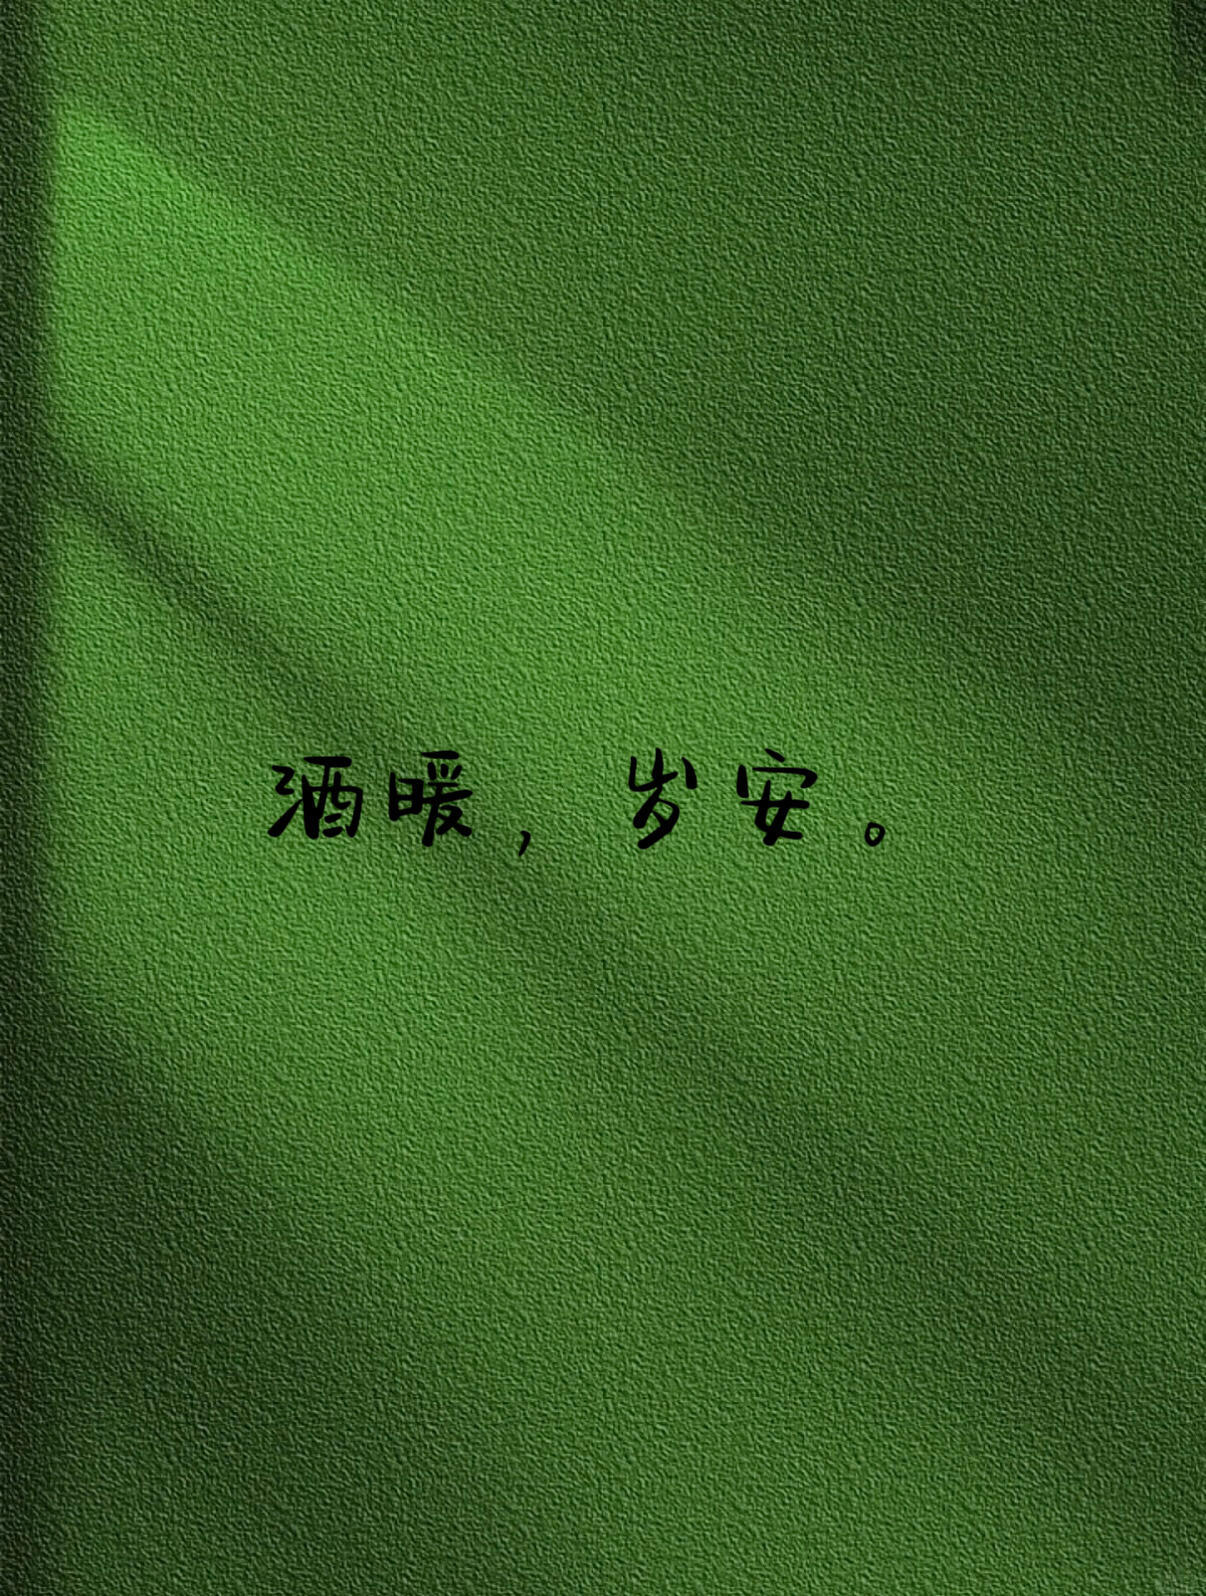 酒暖，岁安。